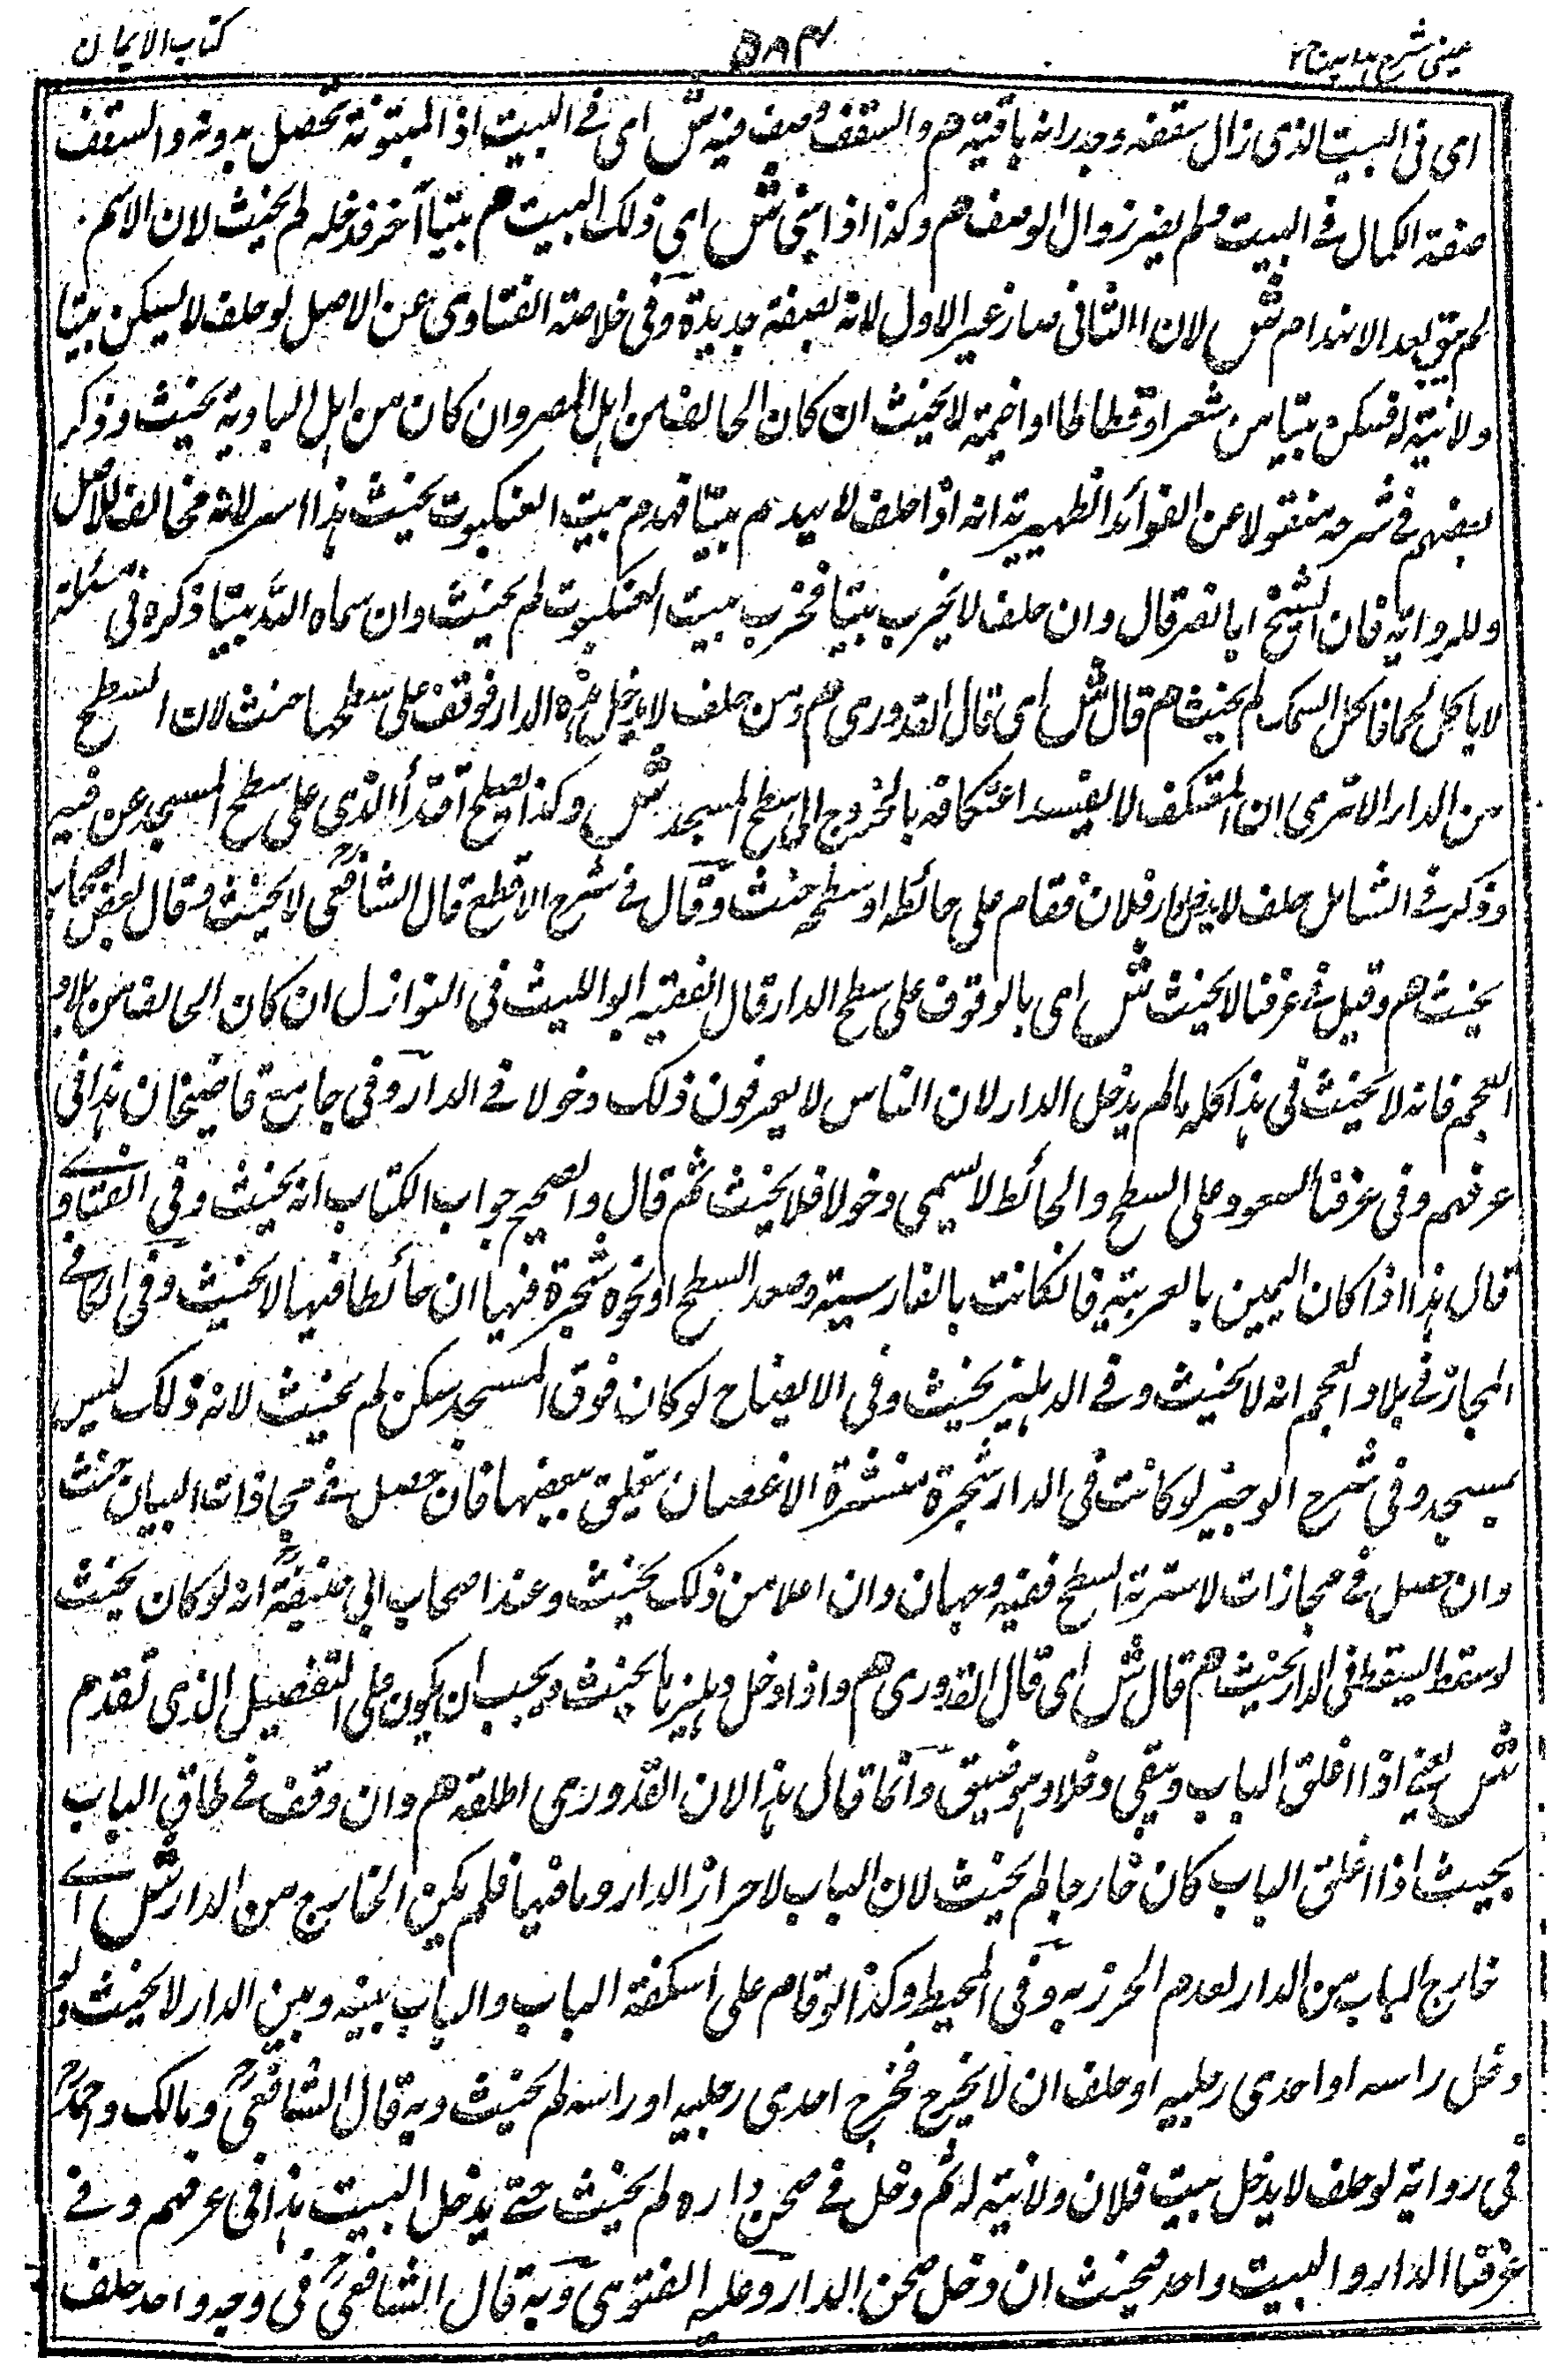 عینی شرح ہدایہ ج ٢
۵۸۴
کتاب الایمان
ای فی البیت الذی زال سقفه وجدرانه باقیة هم والسقف وصف فیه ش ای فے البیت اذ البیتوتة تحصل بدونه والسقف
صفة الکمال فے البیت فلم یضر زوال الوصف هم وکذا اذا بنی ش ای ذلک البیت هم بیتا آخر فدخله لم یحنث لان الاسم
لم یبق بعد الانهدام ش لان الثانی صار غیر الاول لانه بصفة جدیدة وفی خلاصة الفتاوی عن الاصل لو حلف لا یسکن بیتا
ولا نیة له فسکن بیتا من شعر او فسطاطا او خیمة لا یحنث ان کان الحالف من اہل المصر وان کان من اہل البادیة یحنث وذکر
بعضهم فے شرحه منقولا عن الفوائد الظهیریة انه اذا حلف لا یہدم بیتا فهدم بیت العنکبوت یحنث ہذا سهو لانه مخالف للاصل
وللروایة فان الشیخ ابا نصر قال وان حلف لا یخرب بیتا فخرب بیت العنکبوت لم یحنث وان سماه الله بیتا ذکره فی مسئلة
لا یاکل لحما فاکل السمک لم یحنث هم قال ش ای قال القدوری هم ومن حلف لا یدخل هذه الدار فوقف علی سطحها حنث لان السطح
من الدار الا تری ان المعتکف لا یفسد اعتکافه بالخروج الی سطح المسجد ش وکذا یصح اقتدأ الذی علی سطح المسجد عن فیه
وذکر فے الشامل حلف لا یدخل دار فلان فقام علی حائطه او سطحه حنث وقال فے شرح الاقطع قال الشافعیؒ لا یحنث وقال بعض اصحابه
یحنث هم وقیل فے عرفنا لا یحنث ش ای بالوقوف علی سطح الدار قال الفقیه ابو اللیث فی النوازل ان کان الحالف من بلاد
العجم فانه لا یحنث فی ہذا کله مالم یدخل الدار لان الناس لا یعرفون ذلک دخولا فے الدار وفی جامع قاضیخان ہذا فی
عرفهم وفی عرفنا الصعود علی السطح والحائط لا یسمی دخولا فلا یحنث ثم قال والصحیح جواب الکتاب انه یحنث وفی الفتاوے
قال ہذا اذا کان الیمین بالعربیة فان کانت بالفارسیة وصعد السطح او نحوه شجرة فیها ان حائطا فیها لا یحنث وفی الکافے
المجاز فے بلاد العجم انه لا یحنث وفے الدہلیز یحنث وفی الایضاح لو کان فوق المسجد سکن لم یحنث لانه ذلک لیس
بمسجد وفی شرح الوجیز لو کانت فی الدار شجرة منتشرة الاغصان بتعلق ببعضها فان حصل فے محاذات البیان حنث
وان حصل فے محازات لاسترة السطح ففیه وجهان وان اعلا من ذلک یحنث وعند اصحاب ابی حنیفةؒ انه لو کان یحنث
لو سقط لیسقط فی الدار یحنث هم قال ش ای قال القدوری هم واذا دخل دہلیزہا یحنث ویجب ان یکون علی التفصیل الذی تقدم
ش یعنے اذا اغلق الباب ویبقی دخلا وہو ضیق وانما قال ہذا لان القدوری اطلقه هم وان وقف فے طاق الباب
بحیث اذا اغلق الباب کان خارجا لم یحنث لان الباب لاحراز الدار وما فیها فلم یکن الخارج من الدار ش اے
خارج الباب من الدار لعدم الحرز به وفی المحیط وکذا لو قام علی اسکفة الباب والباب بینه وبین الدار لا یحنث ولو
دخل راسه او احدی رجلیه او حلف ان لا یخرج فخرج احدی رجلیه او راسه لم یحنث وبه قال الشافعیؒ ومالک واحمدؒ
فی روایة لو حلف لا یدخل بیت فلان ولا نیة له ثم دخل فے صحن داره لم یحنث حتے یدخل البیت ہذا فی عرفهم وفے
عرفنا الدار والبیت واحد فیحنث ان دخل صحن الدار وعلیه الفتوی وبه قال الشافعیؒ فی وجه واحد حلف